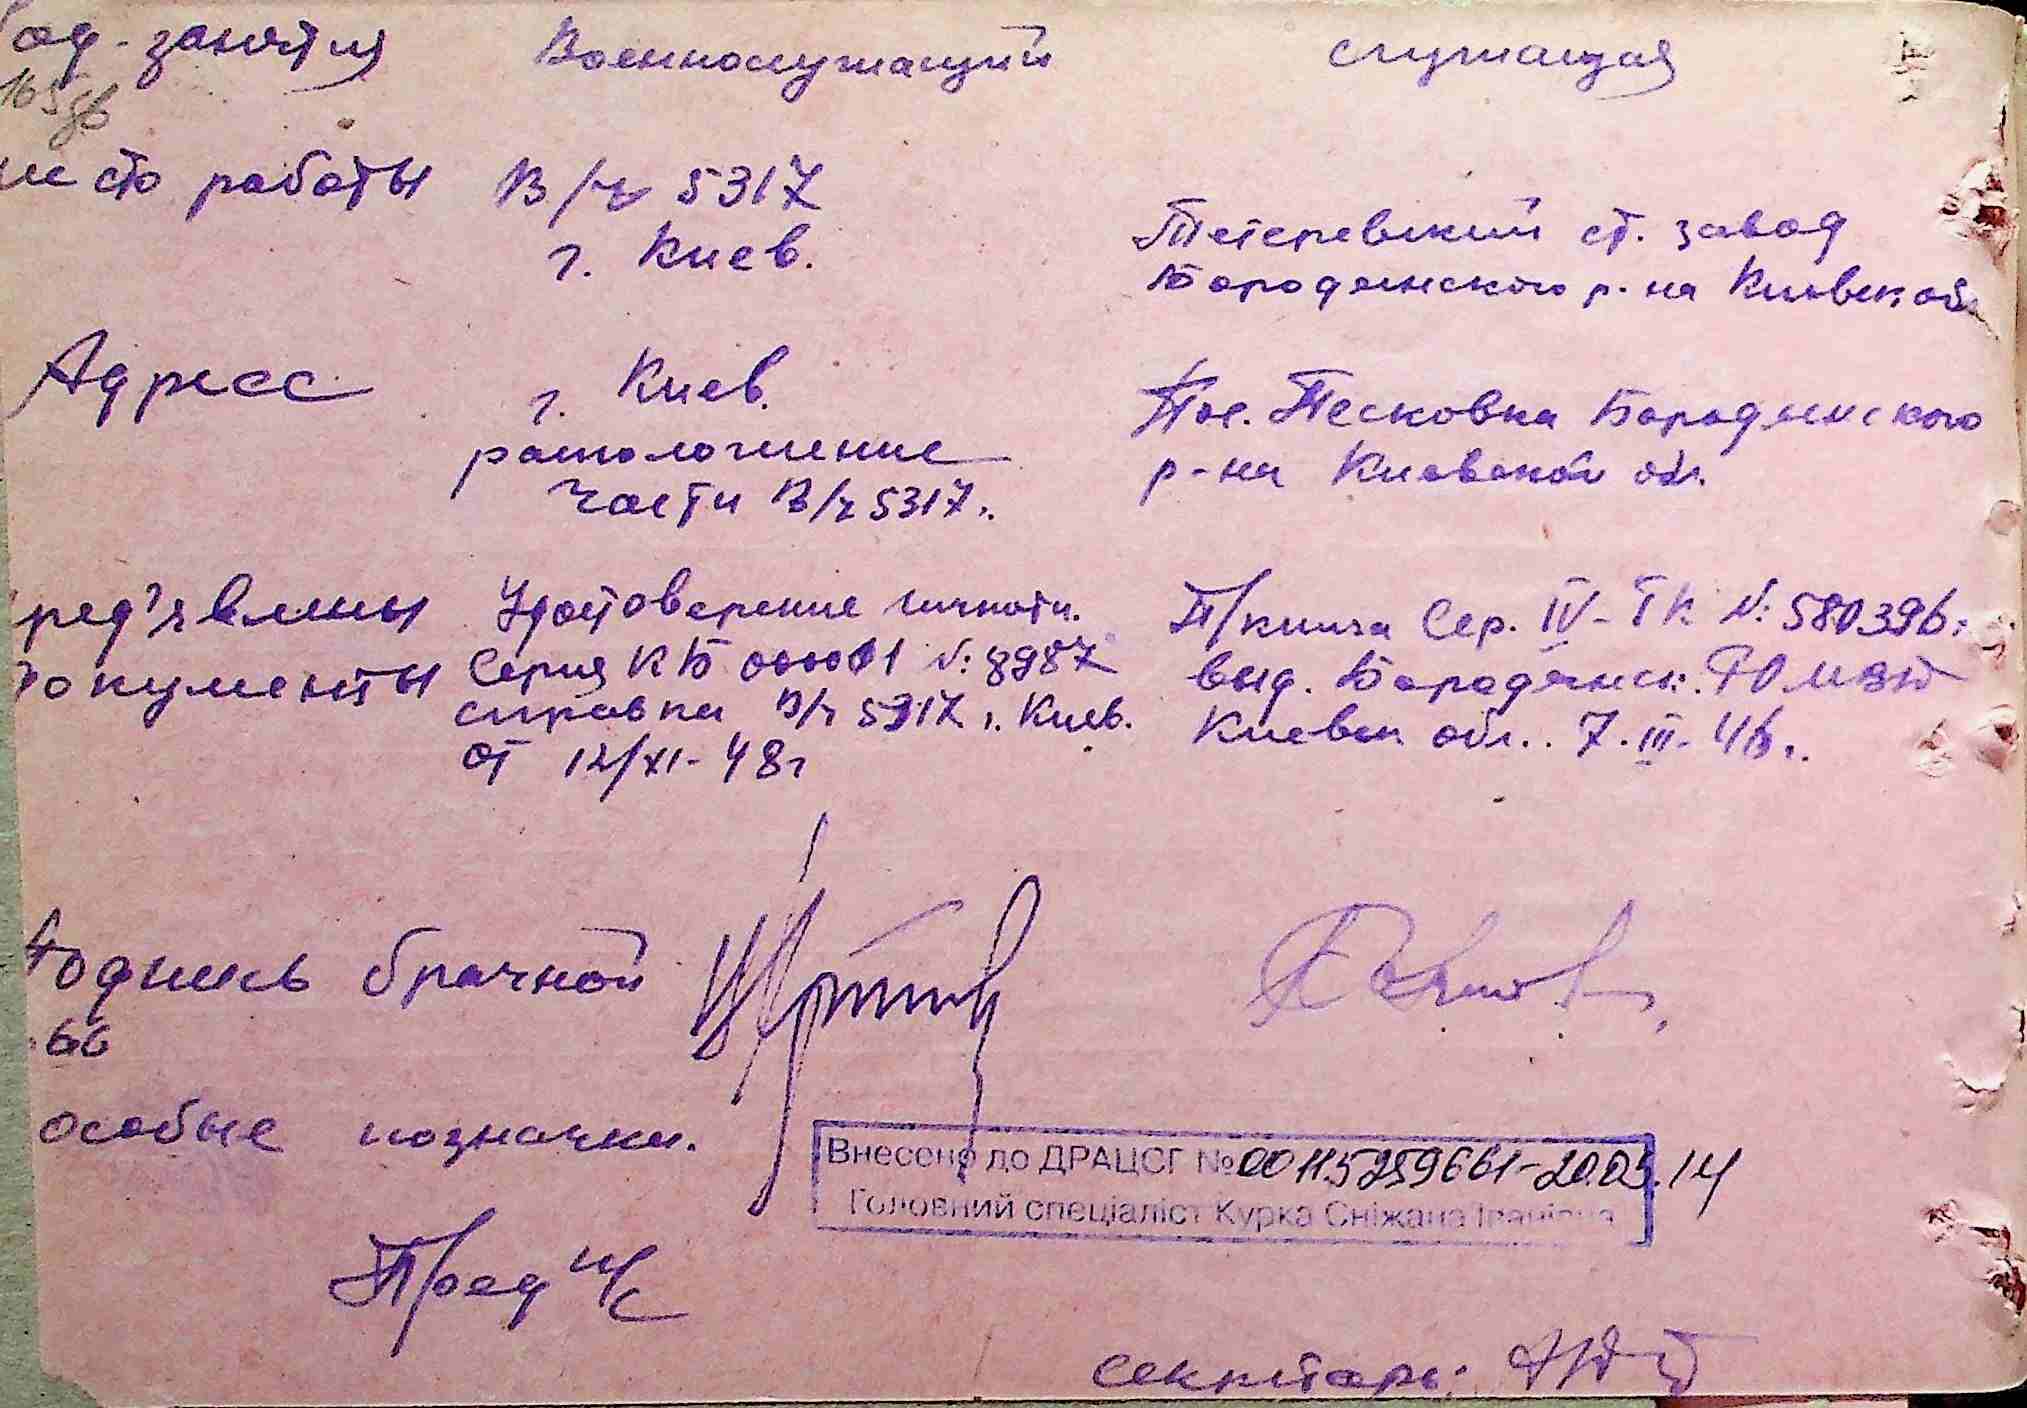 од-занятия Военнослужащий служащая
место работы В/ч 5317
г. Киев.
Тетеревский ст. завод
Бородянского р-на Киевской
Адрес г. Киев.
расположение
части В/ч 5317.
Пос. Песковка Бородянского
р-на Киевской обл.
ред'явлины Удостоверение личности.
документы Серия КБ №: 8987
справка В/ч 5317 г. Киев.
от 12/XI-48г
П/книга Сер. IV-ТК №: 580396.
выд. Бородянск. РО МВД
Киевск обл.. 7.III-46г.
Подпись брачной
особые позначки.
Внесено до ДРАЦСГ №00115259661-20.03.14
Головний спеціаліст Курка Сніжана Іванівна
Пред с/с
секретарь: